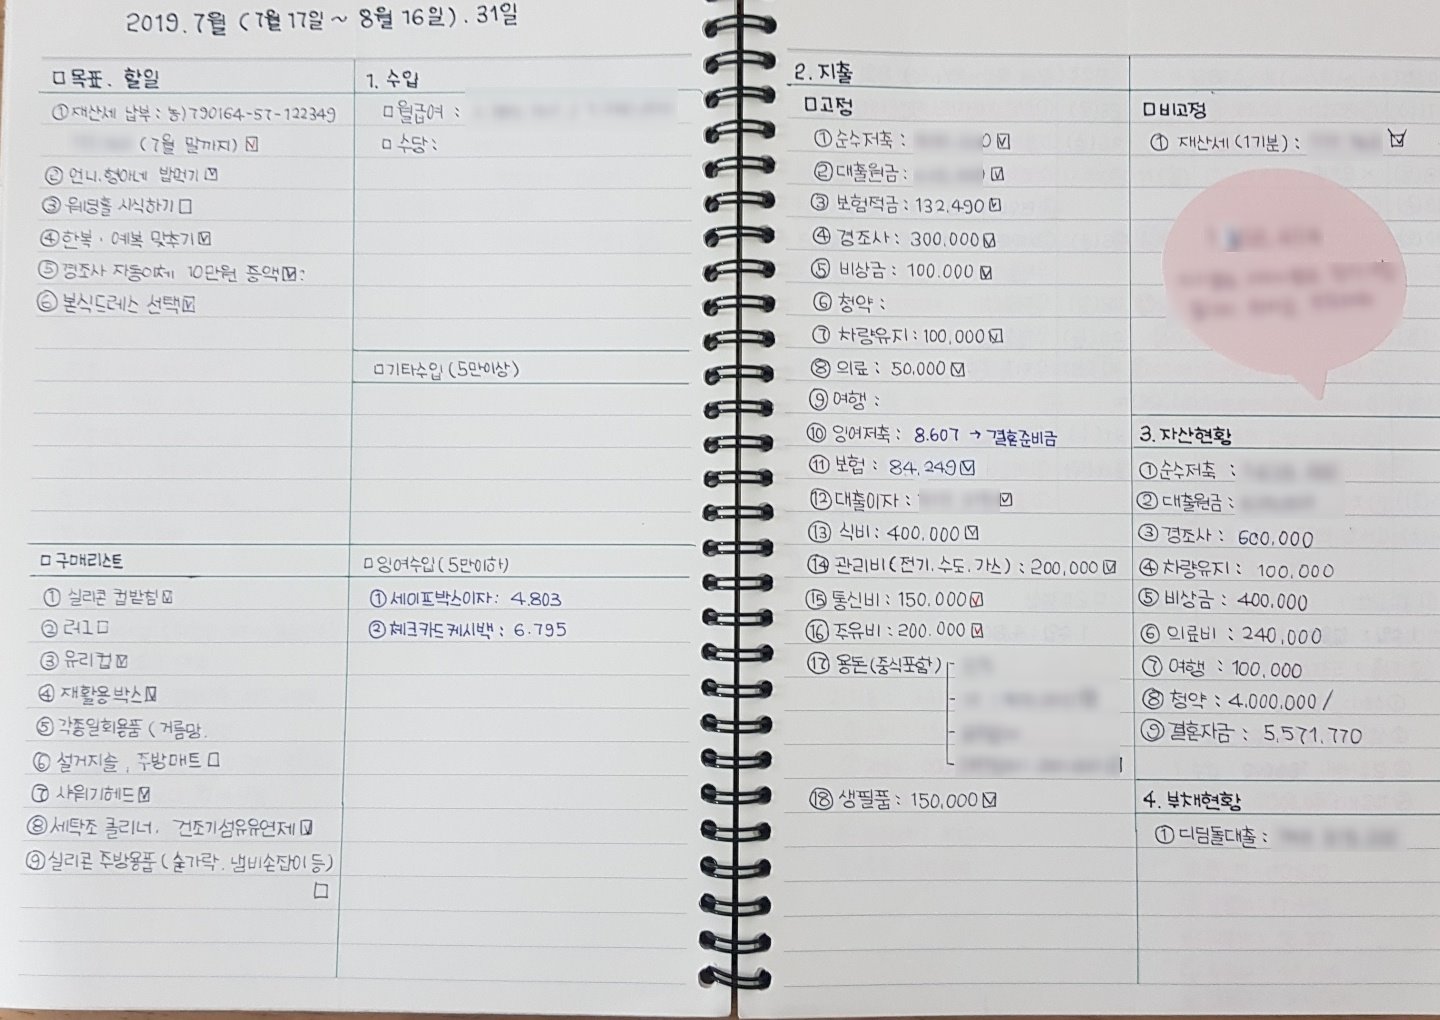 2019. 7월 (7월 17일 ~ 8월 16일). 31일
□ 목표. 할일
① 재산세 납부 : 농)790164-57-122349
(7월 말까지) ☑
② 언니.형아네 밥먹기 ☑
③ 웨딩홀 시식하기 □
④ 한복. 예복 맞추기 ☑
⑤ 경조사 자동이체 10만원 증액 ☑:
⑥ 본식드레스 선택 ☑
□ 구매리스트
① 실리콘 컵받침 ☑
② 러그 □
③ 유리컵 ☑
④ 재활용박스 ☑
⑤ 각종일회용품 (거름망.
⑥ 설거지솔, 주방매트 □
⑦ 샤워기헤드 ☑
⑧ 세탁조 클리너. 건조기섬유유연제 ☑
⑨ 실리콘 주방용품 (숟가락. 냄비손잡이 등)
□
1. 수입
□ 월급여 :
□ 수당 :
□ 기타수입 (5만이상)
□ 잉여수입 (5만이하)
① 세이프박스이자: 4.803
② 체크카드캐시백: 6.795
2. 지출
□ 고정
① 순수저축 : 0 ☑
② 대출원금 : ☑
③ 보험적금 : 132,490 ☑
④ 경조사 : 300,000 ☑
⑤ 비상금 : 100.000 ☑
⑥ 청약 :
⑦ 차량유지 : 100,000 ☑
⑧ 의료 : 50,000 ☑
⑨ 여행 :
⑩ 잉여저축 : 8.607 → 결혼준비금
⑪ 보험 : 84,249 ☑
⑫ 대출이자 : ☑
⑬ 식비 : 400,000 ☑
⑭ 관리비 (전기.수도.가스) : 200,000 ☑
⑮ 통신비 : 150,000 ☑
⑯ 주유비 : 200.000 ☑
⑰ 용돈(중식포함)
⑱ 생필품 : 150,000 ☑
□ 비고정
① 재산세 (1기분) : ☑
3. 자산현황
① 순수저축 :
② 대출원금 :
③ 경조사 : 600,000
④ 차량유지 : 100,000
⑤ 비상금 : 400,000
⑥ 의료비 : 240,000
⑦ 여행 : 100,000
⑧ 청약 : 4,000,000 /
⑨ 결혼자금 : 5,571,770
4. 부채현황
① 디딤돌대출 :